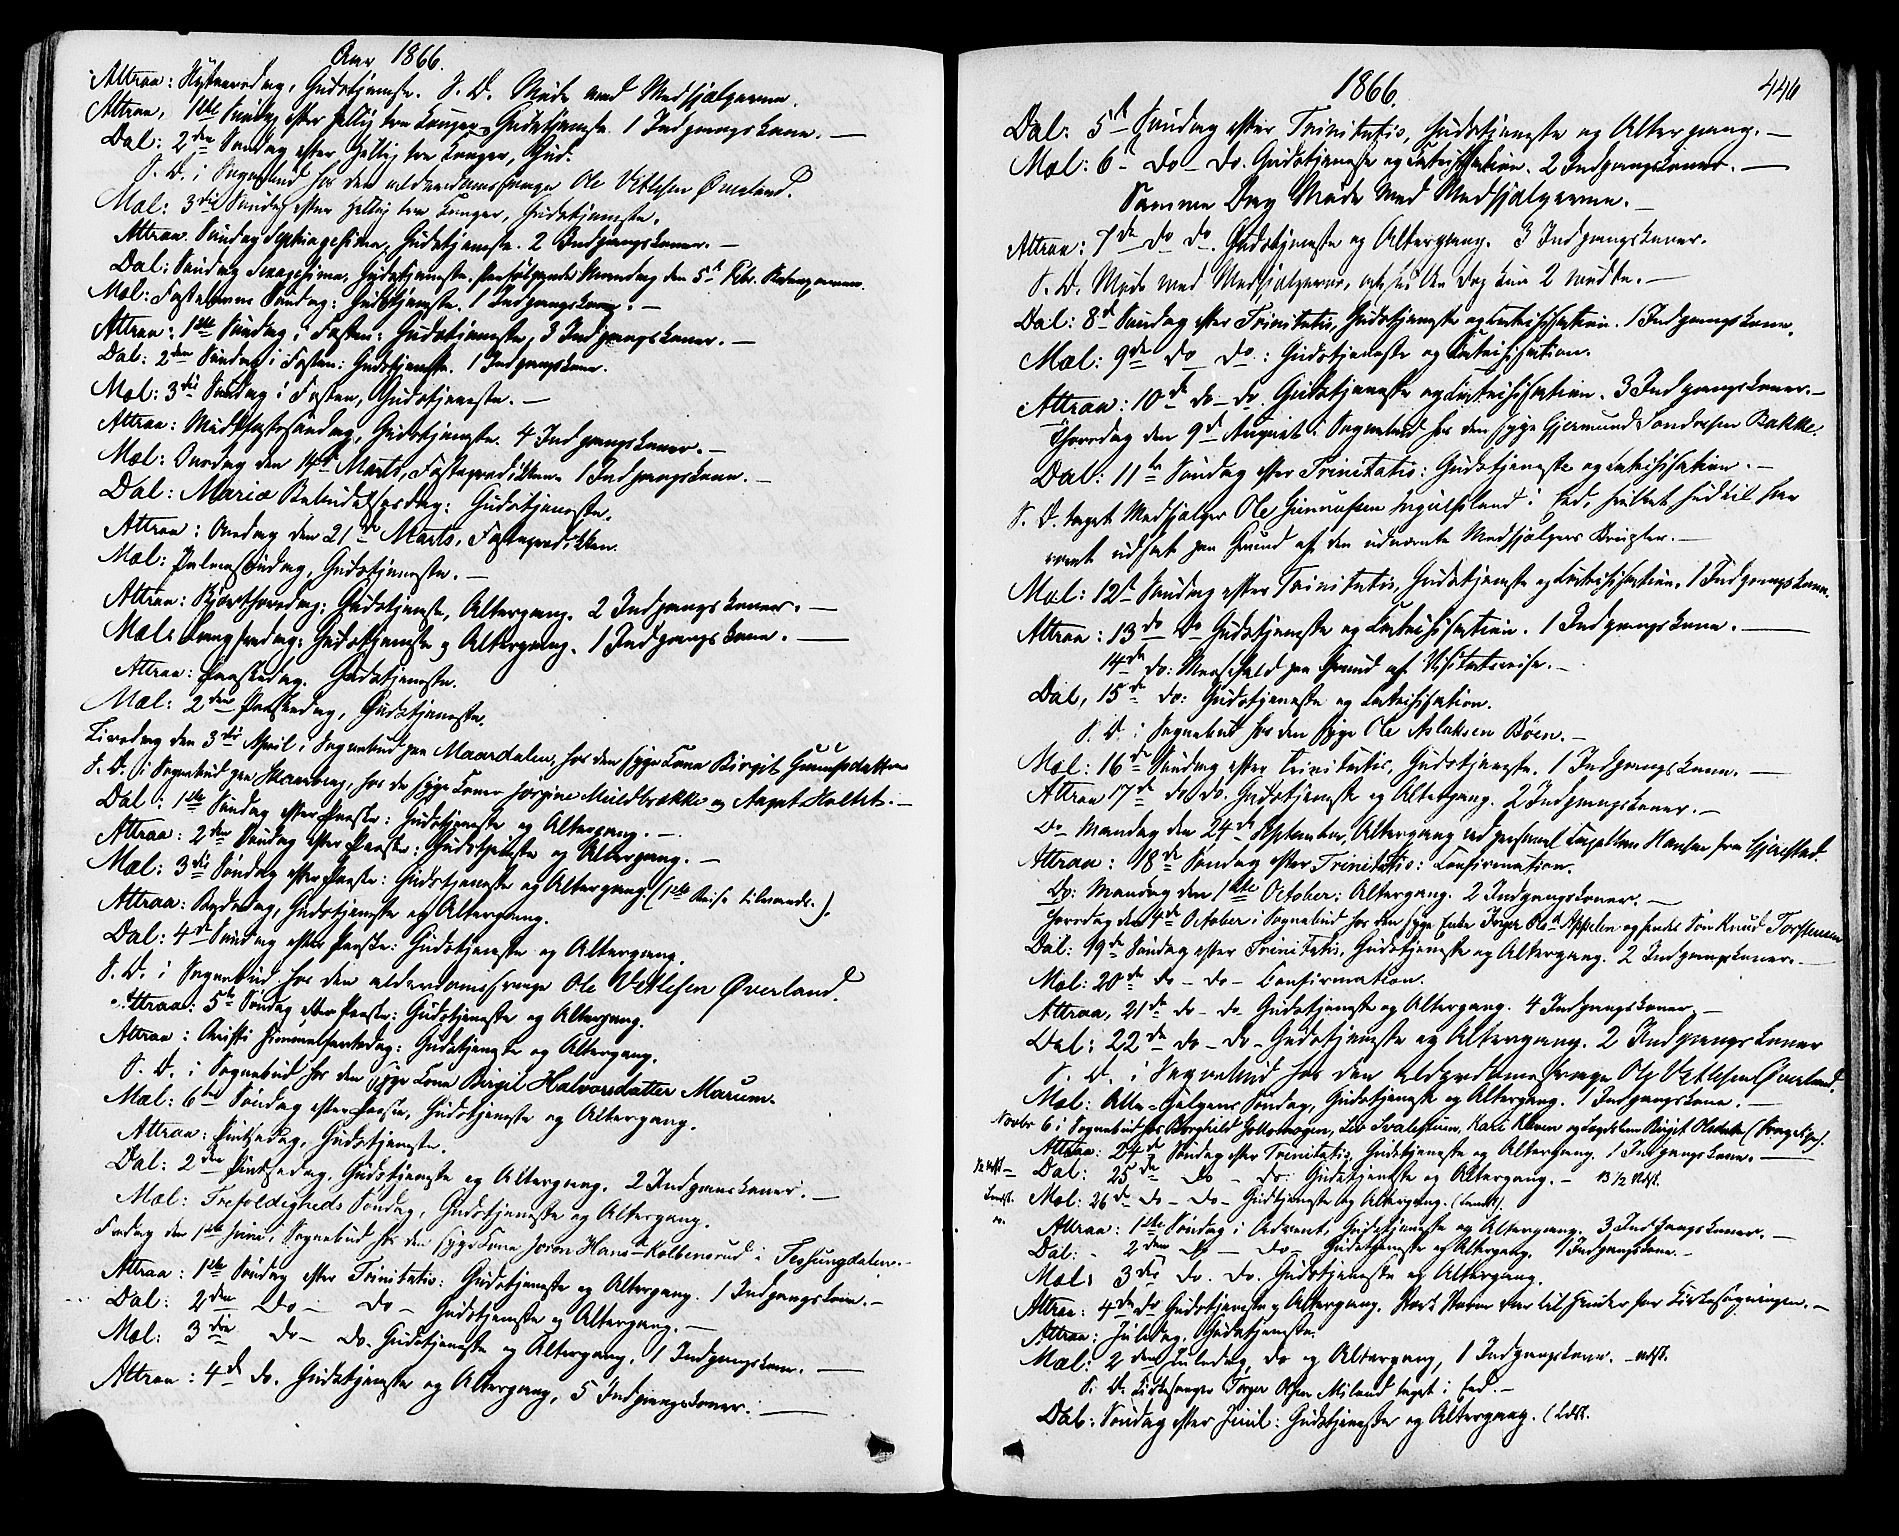 Aar 1866.
Attraa: Nytaarsdag, Gudstjeneste. S. D. Møde med Medhjælperne.
Attraa, 1ste Søndag efter Hellig tre Konger, Gudstjeneste. 1 Indgangskone. —
Dal: 2den Søndag efter Hellig tre Konger, Gud.
S. D. i Sognebud hos den alderdomssvage Ole Vetlesen Øverland.
Mæl: 3die Søndag efter Hellig tre Konger, Gudstjeneste.
Attraa. Søndag Septuagesima, Gudstjeneste. 2 Indgangskoner. —
Dal: Søndag Sexagesima, Gudstjeneste. Paafølgende Mandag den 5te Febr.
Mæl: Fastelavns Søndag: Gudstjeneste. 1 Indgangskone. —
Attraa: 1ste Søndag i Fasten: Gudstjeneste, 3 Indgangskoner. —
Dal: 2den Søndag i Fasten: Gudstjeneste. 1 Indgangskone.
Mæl: 3die Søndag i Fasten, Gudstjeneste. —
Attraa: Midfastesøndag, Gudstjeneste. 4 Indgangskoner. —
Mæl: Onsdag den 14de Marts, Fasteprædiken. 1 Indgangskone. —
Dal: Mariæ Bebudelsesdag: Gudstjeneste.
Attraa: Onsdag den 21de Marts, Fasteprædiken.
Mæl: Palmesøndag, Gudstjeneste. —
Attraa: Skjærthorsdag: Gudstjeneste, Altergang. 2 Indgangskoner. —
Mæl: Langfredag: Gudstjeneste og Altergang. 1 Indgangskone. —
Attraa: Paaskedag. Gudstjeneste.
Mæl: 2den Paaskedag, Gudstjeneste.
Tirsdag den 3die April i Sognebud paa Maardalen, hos den syge Kone Birgit Gunnufsdatter
S. D. i Sognebud paa hos de syge Koner Jorgine Muldbrække og Aagot Holtet. —
Dal: 1ste Søndag efter Paaske: Gudstjeneste og Altergang. —
Attraa: 2den Søndag efter Paaske: Gudstjeneste og Altergang. —
Mæl: 3die Søndag efter Paaske: Gudstjeneste og Altergang (1ste Reise tilvands.).
Attraa: Bededag, Gudstjeneste og Altergang.
Dal: 4de Søndag efter Paaske: Gudstjeneste og Altergang.
S. D. i Sognebud hos den alderdomssvage Ole Vetlesen Øverland.
Attraa: 5te Søndag efter Paaske: Gudstjeneste og Altergang.
Attraa: Christi Himmelfartsdag: Gudstjeneste og Altergang.
S. D. i Sognebud hos den syge Kone Birgit Halvorsdatter Marum.
Mæl: 6te Søndag efter Paaske, Gudstjeneste og Altergang.
Attraa: Pintsedag, Gudstjeneste.
Dal: 2den Pintsedag, Gudstjeneste og Altergang. 2 Indgangskoner. —
Mæl: Trefoldigheds Søndag, Gudstjeneste og Altergang.
Fredag den 1ste Juni, Sognebud hos den syge Kone Joron Hansd. Kolbensrud i Tessungdalen. —
Attraa: 1ste Søndag efter Trinitatis: Gudstjeneste og Altergang. 1 Indgangskone. —
Dal: 2den Do — Do — Gudstjeneste og Altergang. —
Mæl: 3die Do — Do. Gudstjeneste og Altergang, 1 Indgangskone. —
Attraa: 4de Do. Gudstjeneste og Altergang, 5 Indgangskoner. —
1866.
446
Dal: 5te Søndag efter Trinitatis, Gudstjeneste og Altergang. —
Mæl: 6te Do — Do. Gudstjeneste og Catechisation. 2 Indgangskoner. —
Samme Dag Møde med Medhjælperne. —
Attraa: 7de Do Do. Gudstjeneste og Altergang. 3 Indgangskoner.
S. D. Møde med Medhjælperne, kun 2 mødte. —
Dal: 8de Søndag efter Trinitatis, Gudstjeneste og Catechisation. 1 Indgangskone.
Mæl: 9de Do Do: Gudstjeneste og Catechisation.
Attraa: 10de Do — Do. Gudstjeneste og Catechisation. 3 Indgangskoner. —
Thorsdag den 9de August i Sognebud hos den syge Gjermund Sondresen Bakke.
Dal: 11te Søndag efter Trinitatis: Gudstjeneste og Catechisation. —
S. D. taget Medhjælper Ole Gunnufsen Ingulfsland i Eed, hvilket hidtil har
været udsat paa Grund af den udnævnte Medhjælpers
Mæl: 12te Søndag efter Trinitatis, Gudstjeneste og Catechisation, 1 Indgangskone.
Attraa: 13de Do Gudstjeneste og Catechisation. 1 Indgangskone. —
14de Do: Messefald paa Grund af Visitatsreise. —
Dal, 15de Do: Gudstjeneste og Catechisation.
S. D. i Sognebud hos den syge Ole Aslaksen Bøen. —
Mæl: 16de Søndag efter Trinitatis, Gudstjeneste. 1 Indgangskone. —
Attraa 17de Do Do. Gudstjeneste og Altergang. 2 Indgangskoner. —
Do Mandag den 24de September, Altergang ved personel Capellan Hansen fra Gjerestad.
Attraa: 18de Søndag efter Trinitatis: Confirmation.
Do: Mandag den 1ste October: Altergang. 2 Indgangskoner. —
Thorsdag den 4de October i Sognebud hos den syge Enke og hendes Søn Knud Torstensen
Dal: 19de Søndag efter Trinitatis, Gudstjeneste og Altergang. 2 Indgangskoner. —
Mæl: 20de Do — Do — Confirmation.
Attraa, 21de Do — Do Gudstjeneste og Altergang. 4 Indgangskoner. —
Dal: 22de Do — Do — Gudstjeneste og Altergang. 2 Indgangskoner
S. D. i Sognebud hos den alderdomssvage Ole Vetlesen Øverland.
Mæl: Alle-Helgens Søndag, Gudstjeneste og Altergang. 1 Indgangskone. —
Novbr 6 i Sognebud hos Borghild Kari og Birgit
Attraa: 24de Søndag efter Trinitatis, Gudstjeneste og Altergang. 1 Indgangskone. —
Dal: 25de Do — Do: Gudstjeneste og Altergang. —
Mæl: 26de Do — Do — Gudstjeneste og Altergang.
Attraa: 1ste Søndag i Advent, Gudstjeneste og Altergang. 3 Indgangskoner. —
Dal: — 2den Do — Do — Gudstjeneste og Altergang. 1 Indgangskone. —
Mæl: 3die Do. Do. Gudstjeneste og Altergang.
Attraa: 4de Do Gudstjeneste og Altergang. Stærk Storm var til Hinder for Kirkesøgningen. —
Attraa: Juledag. Gudstjeneste.
Mæl: 2den Juledag, Do og Altergang, 1 Indgangskone. —
S. D. Kirkesanger Torger Olsen Miland taget i Eed. —
Dal: Søndag efter Juul: Gudstjeneste og Altergang.